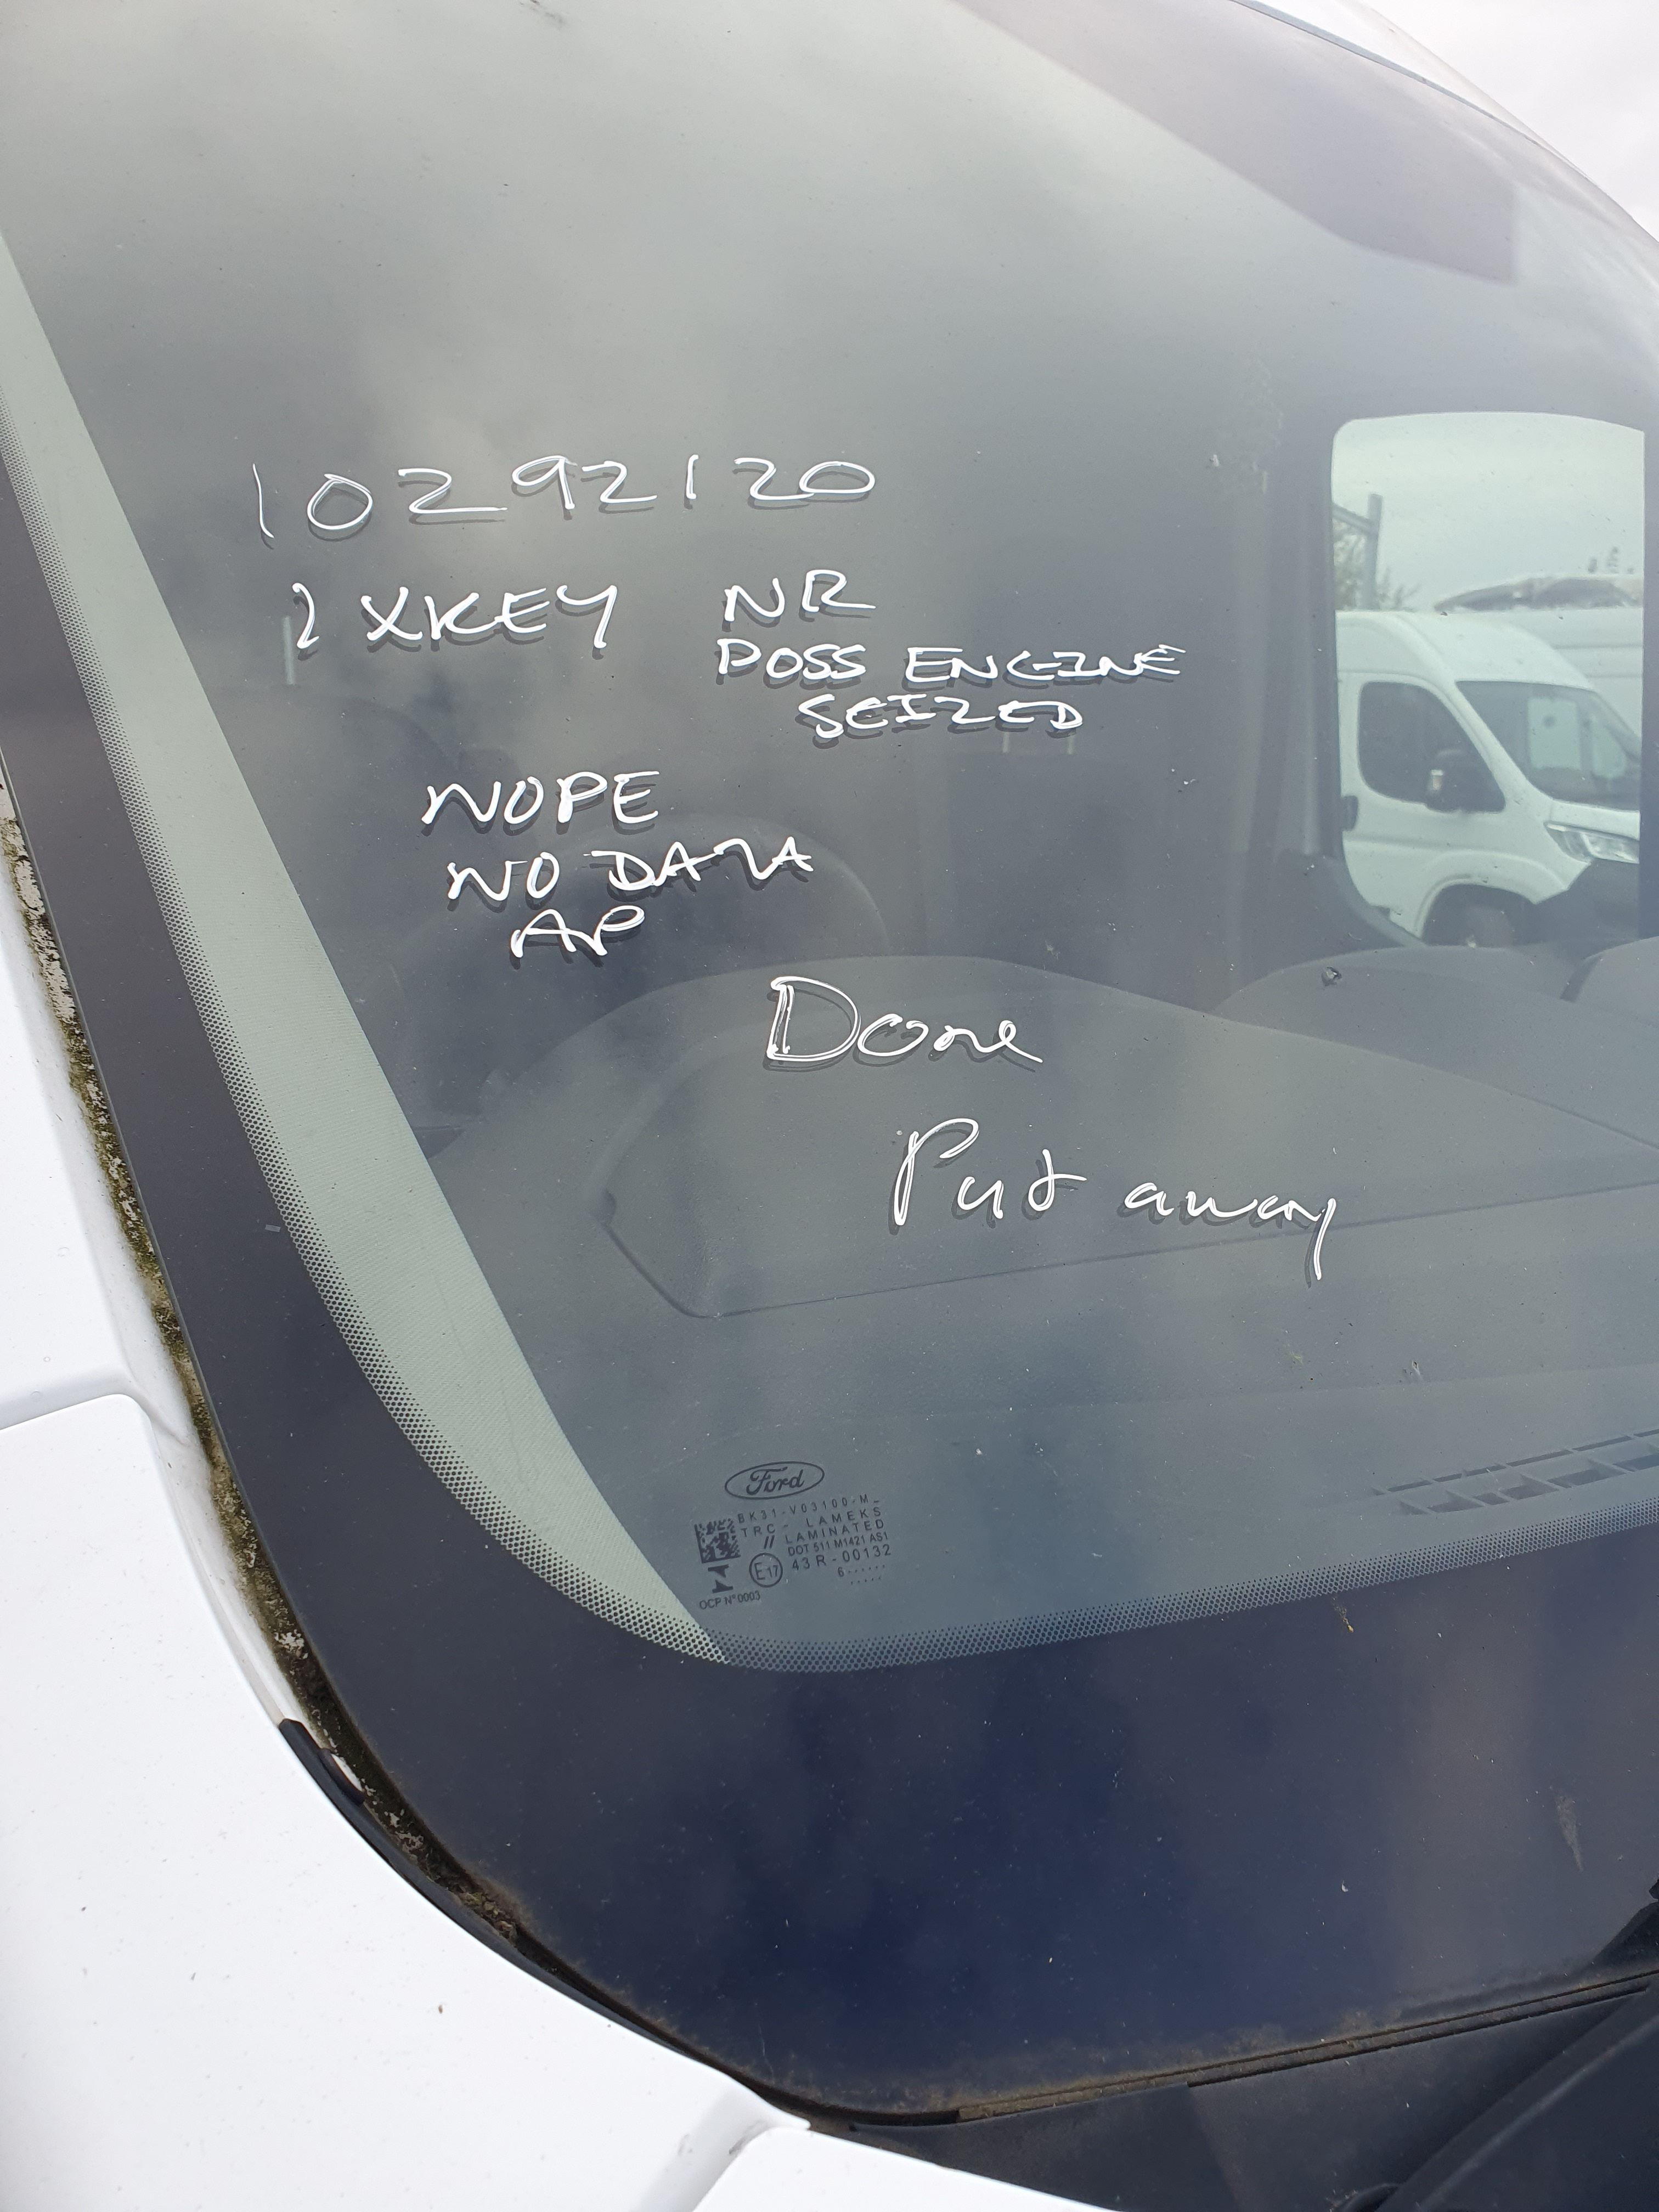 10292120
1 XKEY NR
POSS ENGINE
SEIZED
NOPE
NO DATA
AP
Done
Put away
Ford
BK31-V03100-M_
TRC- LAMEKS
// LAMINATED
DOT 511 M1421 AS1
E17 43R-00132
6......
.....
OCP N°0003